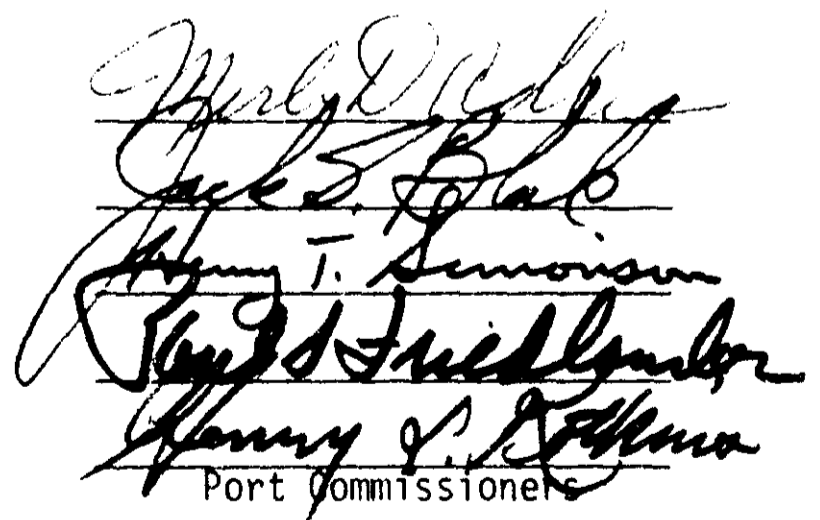 Merle D. Adlum
Jack S. Block
Henry T. Simonson
Paul S Friedlander
Henry L. Kotkins
Port Commissioners